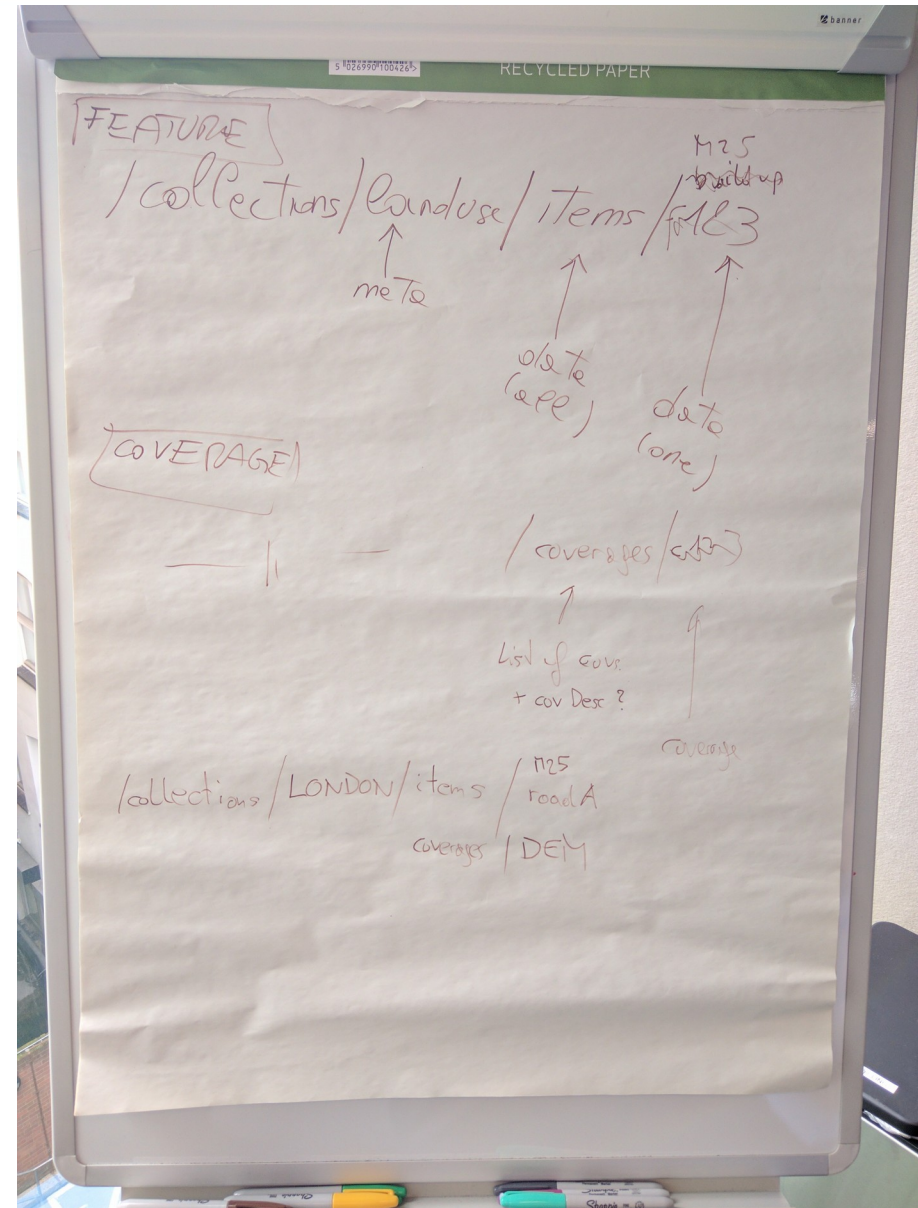 banner
5 026990 100426 >
RECYCLED PAPER
FEATURE
M25
/collections/landuse/items/
meta
data
(all)
data
(one)
COVERAGE
— || —
/coverages/
List of covs.
+ cov Desc ?
coverage
/collections/LONDON/items/
M25
road A
coverages / DEM
Sharpie